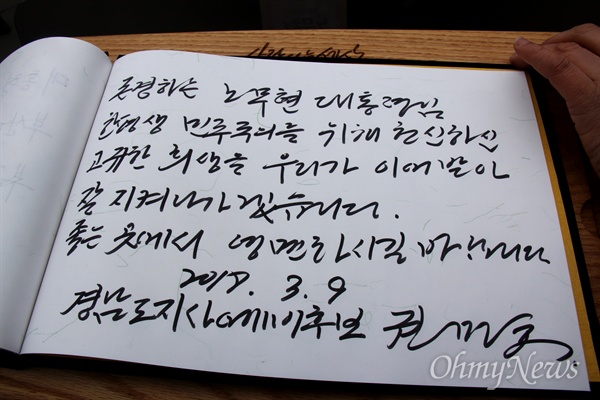 사람사는세상
존경하는 노무현 대통령님
한평생 민주주의를 위해 헌신하신
고귀한 희생을 우리가 이어받아
잘 지켜나가겠습니다.
좋은 곳에서 영면하시길 바랍니다
3. 9
경남도지사예비후보
OhmyNews